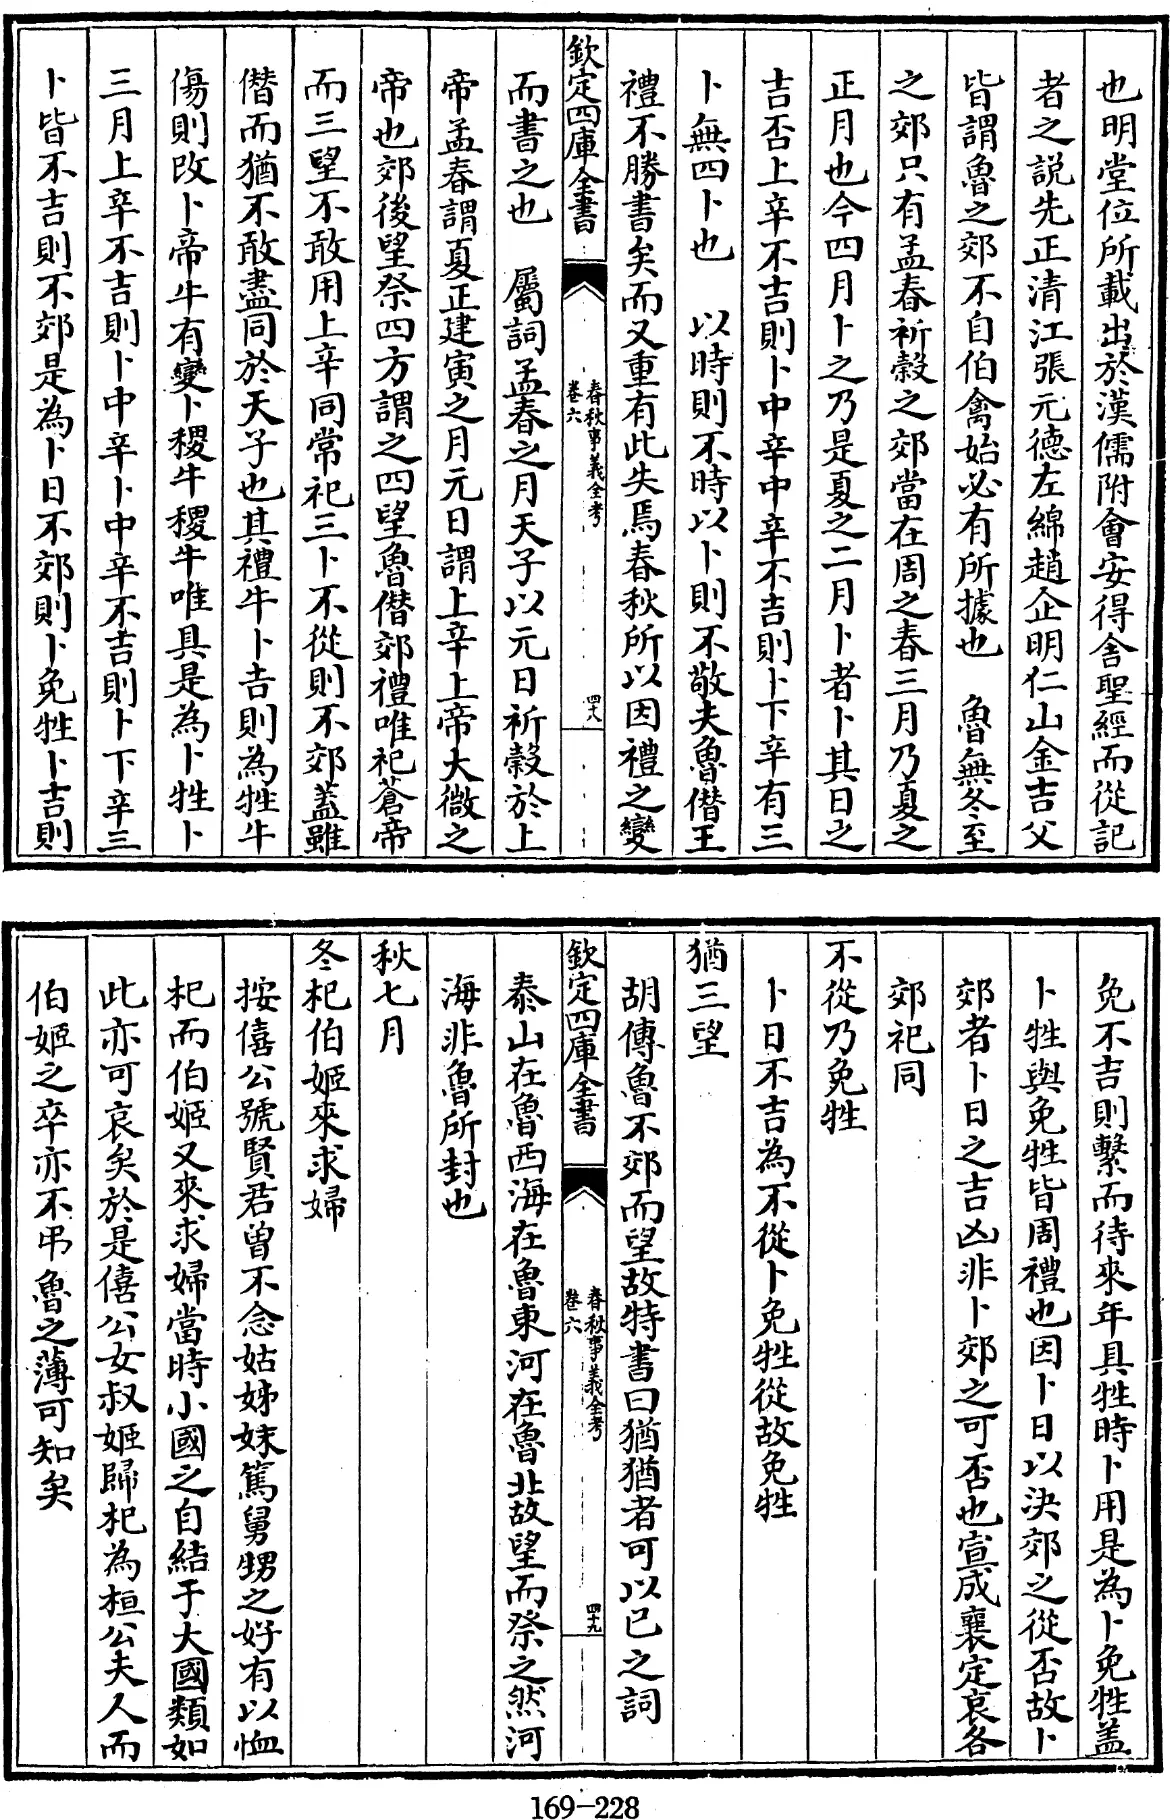 也明堂位所載出於漢儒附會安得舍聖經而從記
者之說先正清江張元德左綿趙企明仁山金吉父
皆謂魯之郊不自伯禽始必有所據也　魯無冬至
之郊只有孟春祈穀之郊當在周之春三月乃夏之
正月也今四月卜之乃是夏之二月卜者卜其日之
吉否上辛不吉則卜中辛中辛不吉則卜下辛有三
卜無四卜也　以時則不時以卜則不敬夫魯僣王
禮不勝書矣而又重有此失焉春秋所以因禮之變
欽定四庫全書
春秋事義全考
卷六
四十八
而書之也　屬詞孟春之月天子以元日祈穀於上
帝孟春謂夏正建寅之月元日謂上辛上帝大微之
帝也郊後望祭四方謂之四望魯僣郊禮唯祀蒼帝
而三望不敢用上辛同常祀三卜不從則不郊蓋雖
僣而猶不敢盡同於天子也其禮牛卜吉則為牲牛
傷則改卜帝牛有變卜稷牛稷牛唯具是為卜牲卜
三月上辛不吉則卜中辛卜中辛不吉則卜下辛三
卜皆不吉則不郊是為卜日不郊則卜免牲卜吉則
免不吉則繫而待來年具牲時卜用是為卜免牲蓋
卜牲與免牲皆周禮也因卜日以決郊之從否故卜
郊者卜日之吉凶非卜郊之可否也宣成襄定哀各
郊祀同
不從乃免牲
卜日不吉為不從卜免牲從故免牲
猶三望
胡傳魯不郊而望故特書曰猶猶者可以已之詞
欽定四庫全書
春秋事義全考
卷六
四十九
泰山在魯西海在魯東河在魯北故望而祭之然河
海非魯所封也
秋七月
冬杞伯姬來求婦
按僖公號賢君曾不念姑姊妹篤舅甥之好有以恤
杞而伯姬又來求婦當時小國之自結于大國類如
此亦可哀矣於是僖公女叔姬歸杞為桓公夫人而
伯姬之卒亦不弔魯之薄可知矣
169-228